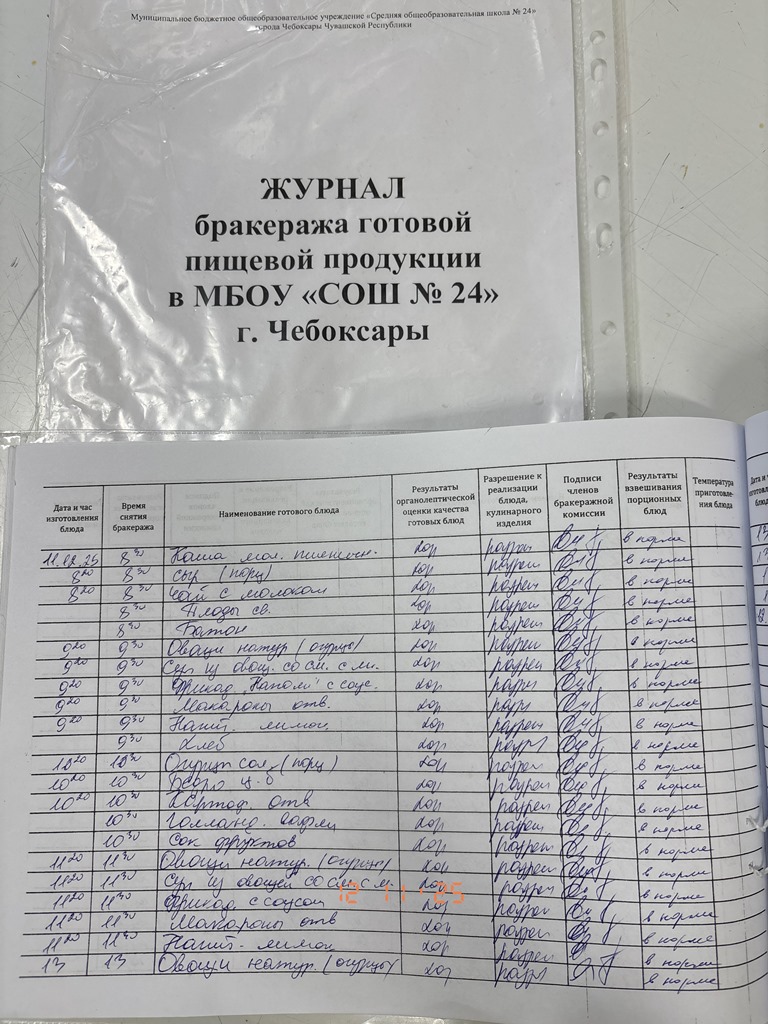 Муниципальное бюджетное общеобразовательное учреждение «Средняя общеобразовательная школа № 24»
города Чебоксары Чувашской Республики
ЖУРНАЛ
бракеража готовой
пищевой продукции
в МБОУ «СОШ № 24»
г. Чебоксары
Дата и час изготовления блюда Время снятия бракеража Наименование готового блюда Результаты органолептической оценки качества готовых блюд Разрешение к реализации блюда, кулинарного изделия Подписи членов бракеражной комиссии Результаты взвешивания порционных блюд Температура приготовле-ния блюда
8³⁰ Каша мол. пшеничн. хор разреш в норме
8²⁰ 8³⁰ сыр (порц) хор разреш в норме
8²⁰ 8³⁰ Чай с молоком хор разреш в норме
8³⁰ Плоды св. хор разреш в норме
8³⁰ Батон хор разреш в норме
9²⁰ 9³⁰ Овощи натур (огурцы) хор разреш в норме
9²⁰ 9³⁰ Суп из овощ. со см. с м. хор разреш в норме
9²⁰ 9³⁰ Фрикад. с соус. хор разреш в норме
9²⁰ 9³⁰ Макароны отв. хор разреш в норме
9²⁰ 9³⁰ Напит. лимон. хор разреш в норме
9³⁰ хлеб хор разреш в норме
10³⁰ Огурцы сол. (порц) хор разреш в норме
10²⁰ 10³⁰ хор разреш в норме
10²⁰ 10³⁰ Картоф. отв хор разреш в норме
10³⁰ Голланд. хор разреш в норме
10³⁰ Сок фруктов хор разреш в норме
11²⁰ 11³⁰ Овощи натур. (огурцы) хор разреш в норме
11²⁰ 11³⁰ Суп из овощей со см. с м. хор разреш в норме
11²⁰ 11³⁰ Фрикад. с соусом хор разреш в норме
11²⁰ 11³⁰ Макароны отв хор разреш в норме
11²⁰ 11³⁰ Напит. лимон хор разреш в норме
13 13 Овощи натур. (огурцы) хор разреш в норме
12 11 '25